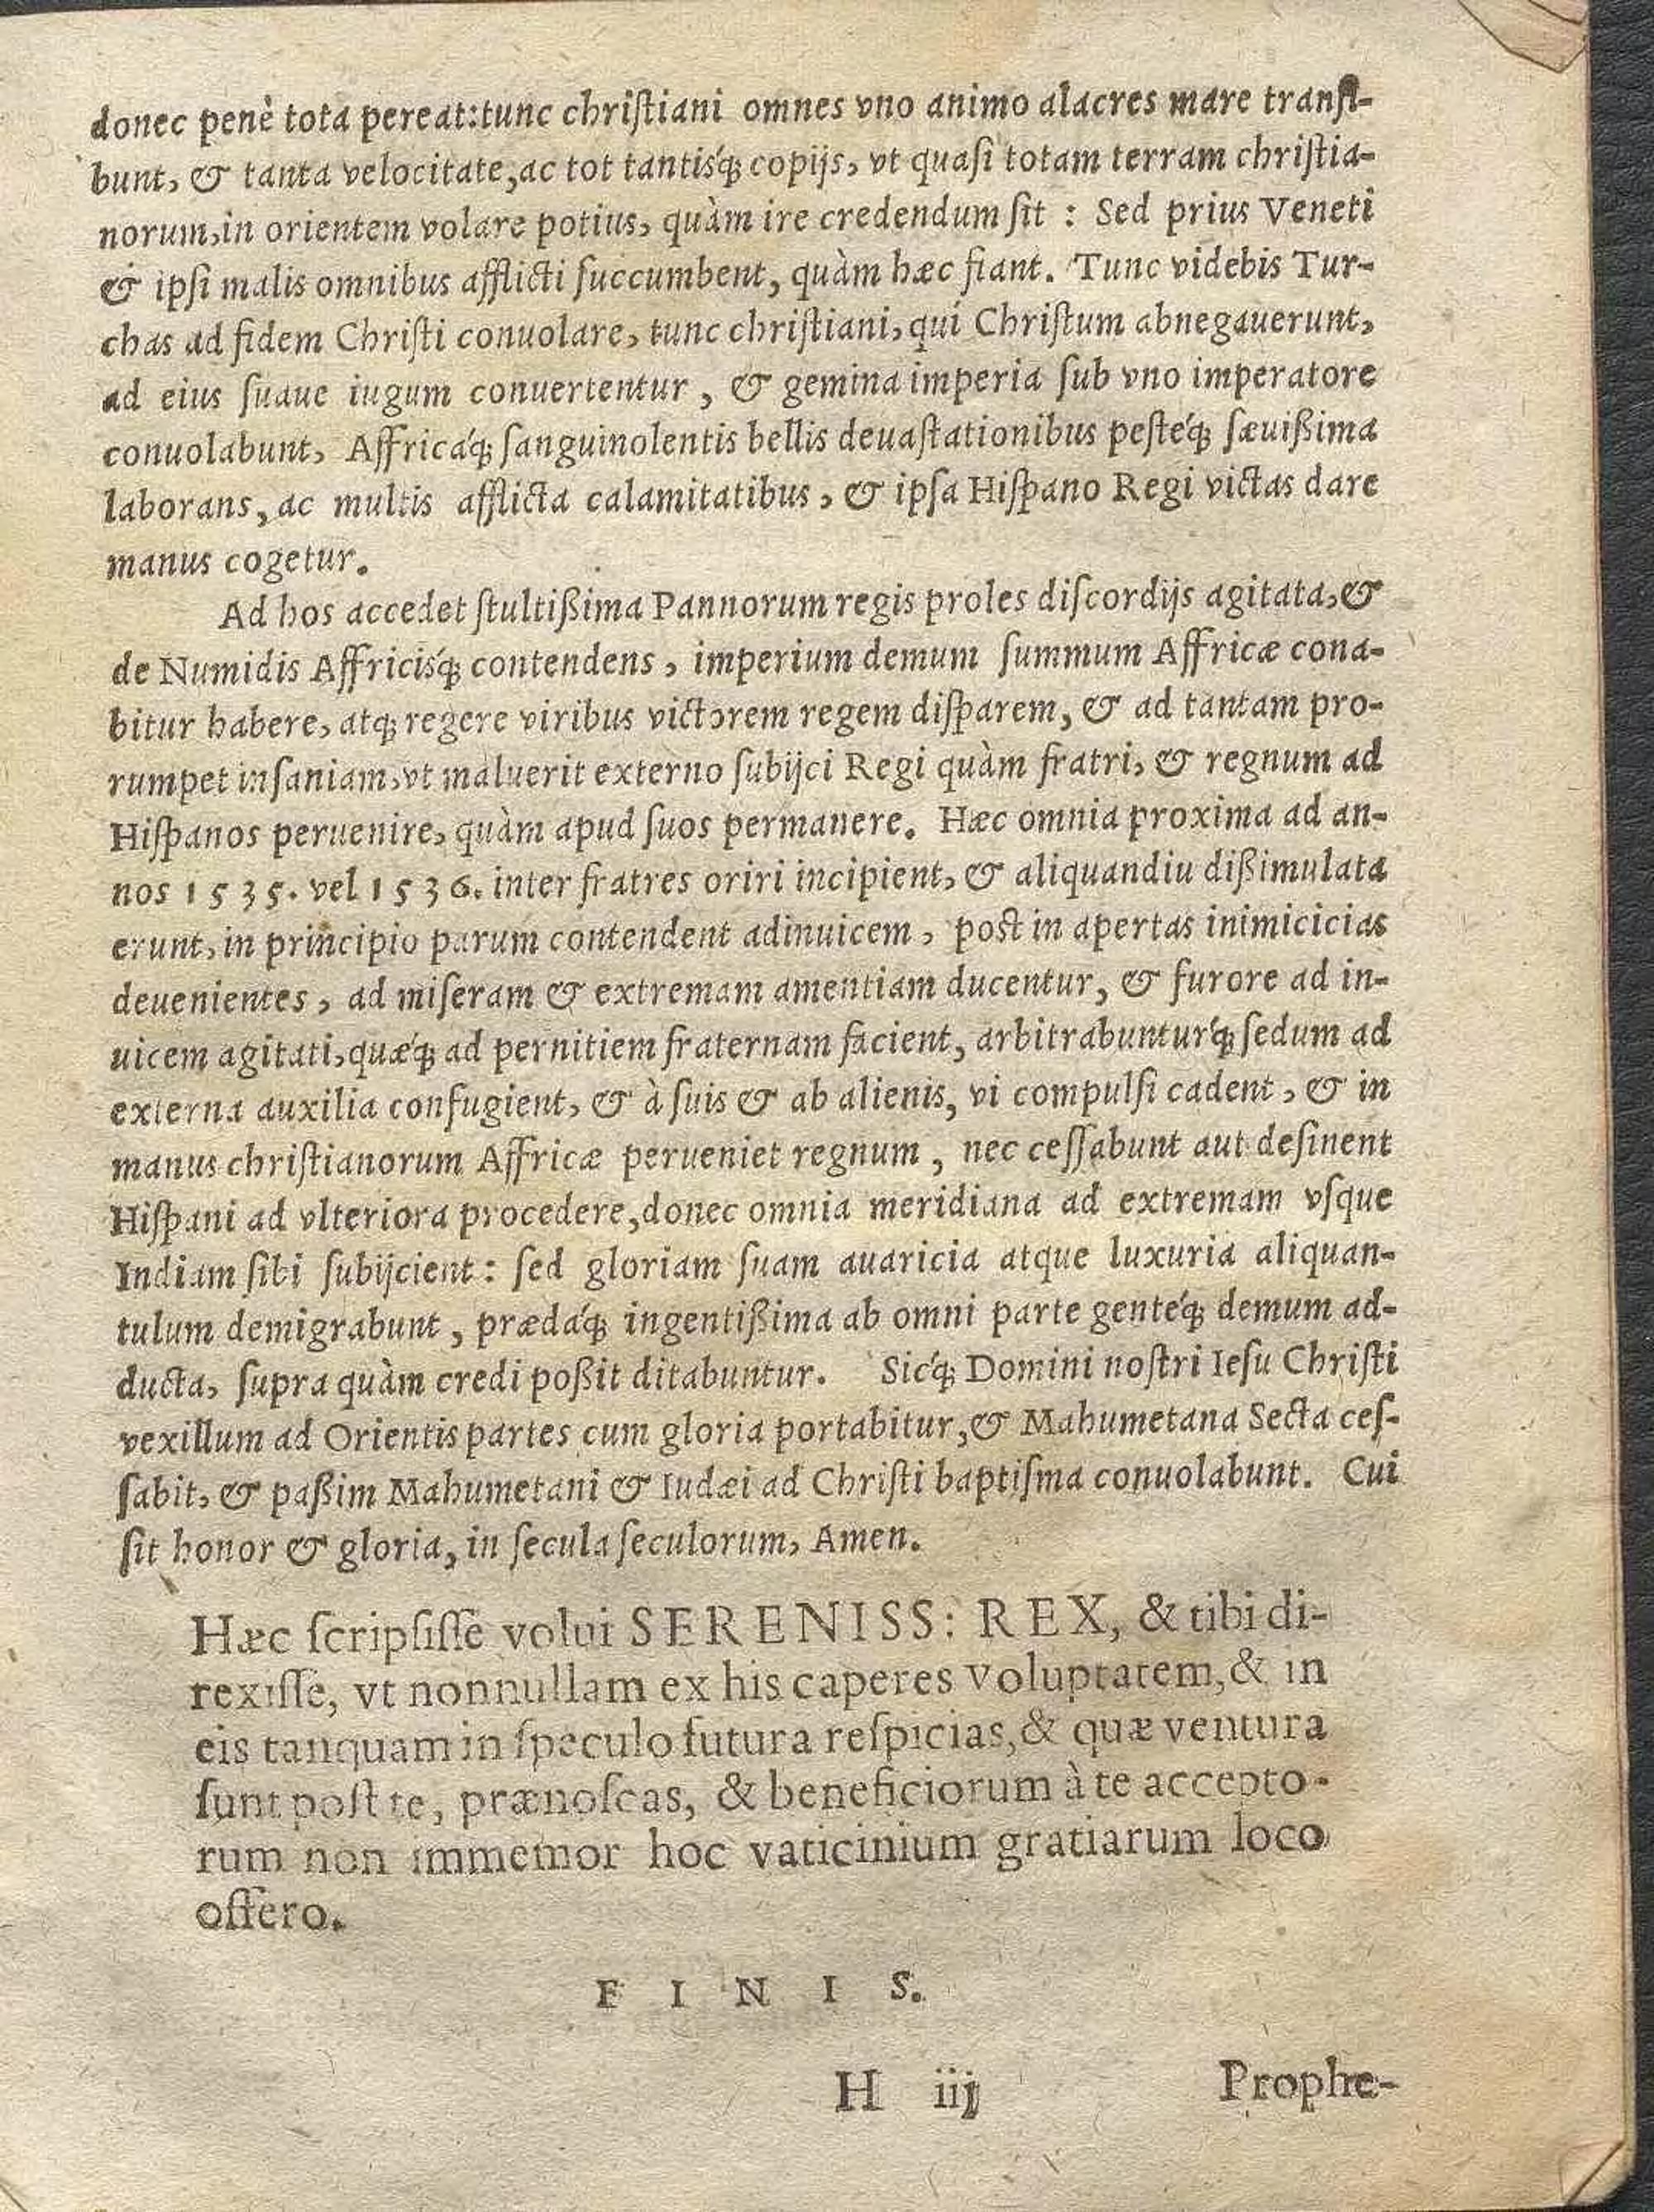 donec penè tota pereat:tunc chriſtiani omnes vno animo alacres mare tranſi-
bunt, & tanta velocitate,ac tot tantisq́; copijs, vt quaſi totam terram chriſtia-
norum,in orientem volare potius, quàm ire credendum ſit : Sed prius Veneti
& ipſi malis omnibus afflicti ſuccumbent, quàm hæc fiant. Tunc videbis Tur-
chas ad fidem Chriſti conuolare, tunc chriſtiani, qui Chriſtum abnegauerunt,
ad eius ſuaue iugum conuertentur , & gemina imperia ſub vno imperatore
conuolabunt, Affricaq́; ſanguinolentis bellis deuaſtationibus peſteq́; ſæuißima
laborans, ac multis afflicta calamitatibus , & ipſa Hiſpano Regi victas dare
manus cogetur.
Ad hos accedet ſtultißima Pannorum regis proles diſcordijs agitata,&
de Numidis Affricisq́; contendens , imperium demum ſummum Affricæ cona-
bitur habere, atq; regere viribus victorem regem diſparem, & ad tantam pro-
rumpet inſaniam,vt maluerit externo ſubijci Regi quàm fratri, & regnum ad
Hiſpanos peruenire, quàm apud ſuos permanere. Hæc omnia proxima ad an-
nos 1535. vel 1536. inter fratres oriri incipient, & aliquandiu dißimulata
erunt, in principio parum contendent adinuicem , post in apertas inimicicias
deuenientes , ad miſeram & extremam amentiam ducentur, & furore ad in-
uicem agitati,quæq́; ad pernitiem fraternam facient, arbitrabunturq́; ſedum ad
externa auxilia confugient, & à ſuis & ab alienis, vi compulſi cadent , & in
manus chriſtianorum Affricæ perueniet regnum , nec ceſſabunt aut deſinent
Hiſpani ad vlteriora procedere,donec omnia meridiana ad extremam vſque
Indiam ſibi ſubijcient: ſed gloriam ſuam auaricia atque luxuria aliquan-
tulum demigrabunt , prædaq́; ingentißima ab omni parte genteq́; demum ad-
ducta, ſupra quàm credi poßit ditabuntur. Sicq́; Domini noſtri Ieſu Chriſti
vexillum ad Orientis partes cum gloria portabitur,& Mahumetana Secta ceſ-
ſabit, & paßim Mahumetani & Iudæi ad Chriſti baptiſma conuolabunt. Cui
ſit honor & gloria, in ſecula ſeculorum, Amen.
Hæc ſcripſiſſe volui SERENISS: REX, & tibi di-
rexiſſe, vt nonnullam ex his caperes voluptatem,& in
eis tanquam in ſpeculo futura reſpicias,& quæ ventura
ſunt poſt te, prænoſcas, & beneficiorum à te accepto-
rum non immemor hoc vaticinium gratiarum loco
offero.
F I N I S.
H iij Prophe-